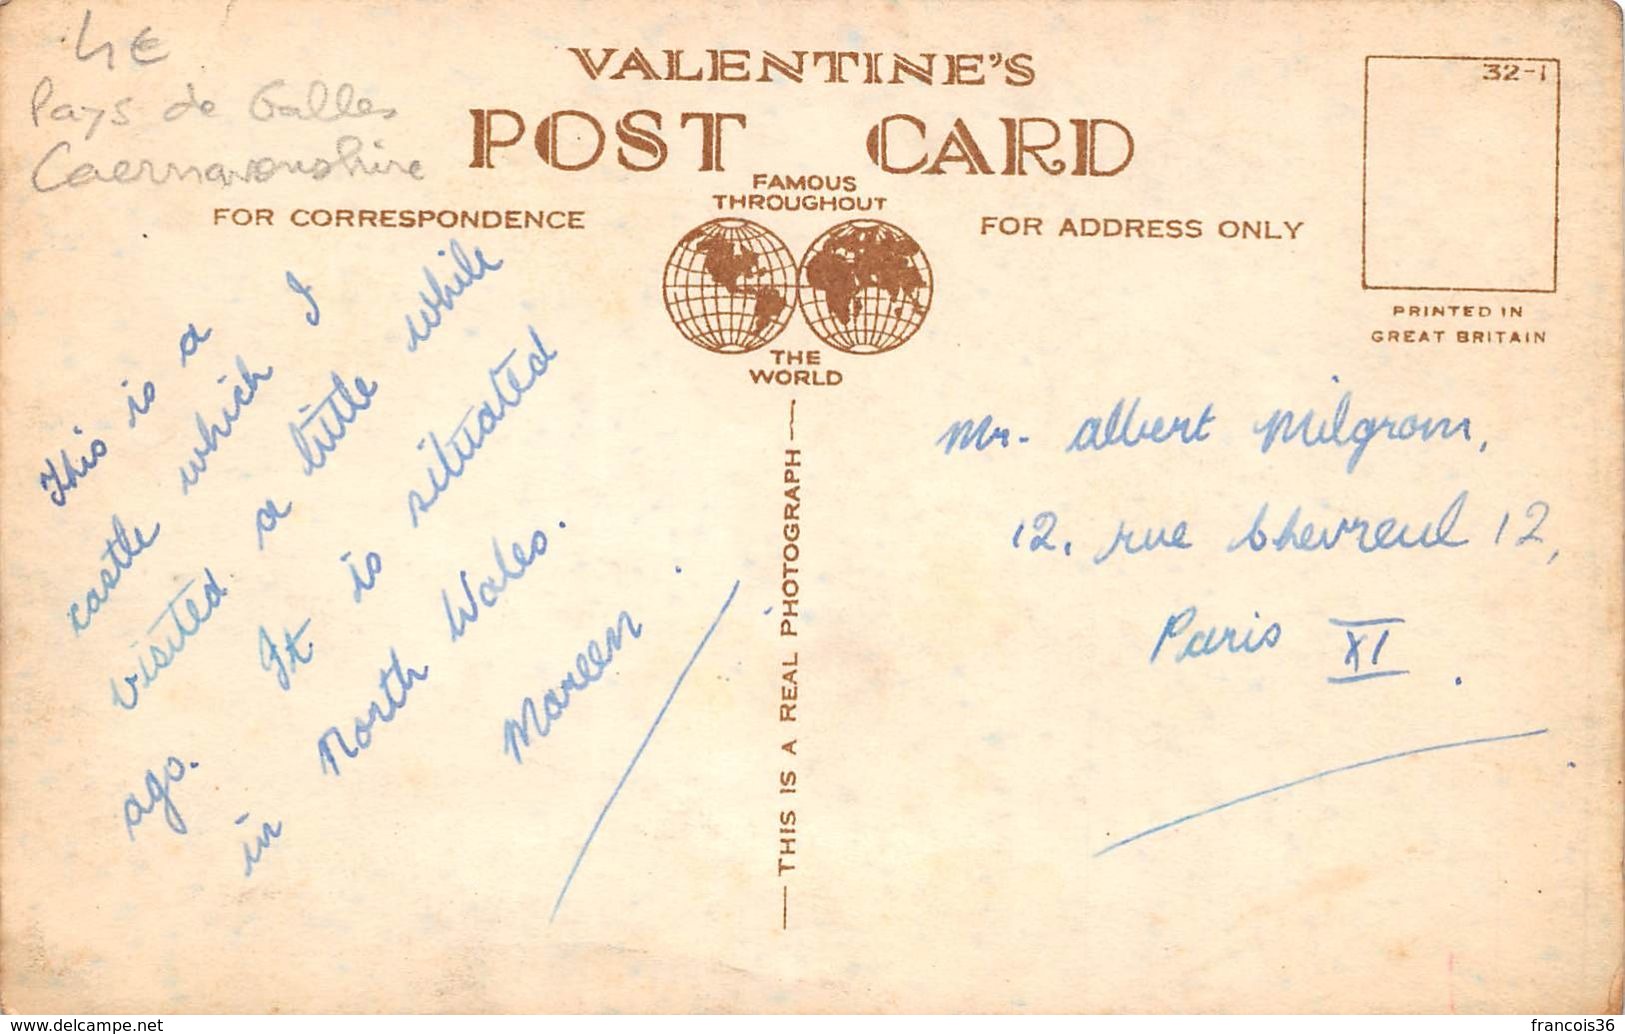 4€
Pays de Galles
Caernavonshire
VALENTINE'S
POST CARD
FAMOUS
THROUGHOUT
THE
WORLD
FOR CORRESPONDENCE
FOR ADDRESS ONLY
32-1
PRINTED IN
GREAT BRITAIN
This is a
castle which I
visited a little while
ago. It is situated
in North Wales.
Maureen
THIS IS A REAL PHOTOGRAPH
Mr. Albert Milgrom,
12, rue Chevreul 12,
Paris XI
www.delcampe.net
francois36